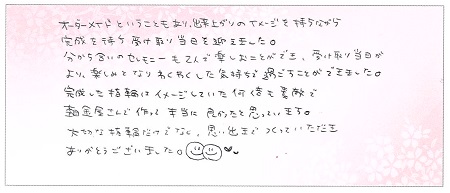 オーダーメイドということもあり、出来上がりのイメージを持ちながら
完成を待ち受け取り当日を迎えました。
分から合いのセレモニーも2人で楽しむことができ、受け取り当日が
より、楽しみとなりわくわくした気持ちで過ごすことができました。
完成した指輪はイメージしていた何倍も素敵で
鶴金屋さんで作って本当に良かったと思っています。
大切な指輪だけでなく、思い出までつくっていただき
ありがとうございました。